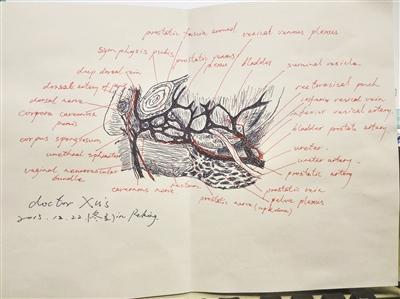 prostatic fascia around
vesical venous plexus
symphysis pubis
prostatic venous
plexus
bladder
seminal vesicle
deep dorsal vein
rectovesical pouch
dorsal artery of penis
inferior vesical vein
dorsal nerve
inferior vesical artery
corpora cavernosa
penis
bladder prostate artery
corpus spongiosum
ureter
urethral sphincter
ureter artery
vaginal neurovascular
bundle
prostatic artery
cavernous nerve
rectum
prostatic vein
pelvic plexus
prostatic nerve (up&down)
doctor Xu's
2015.12.22 in Peking